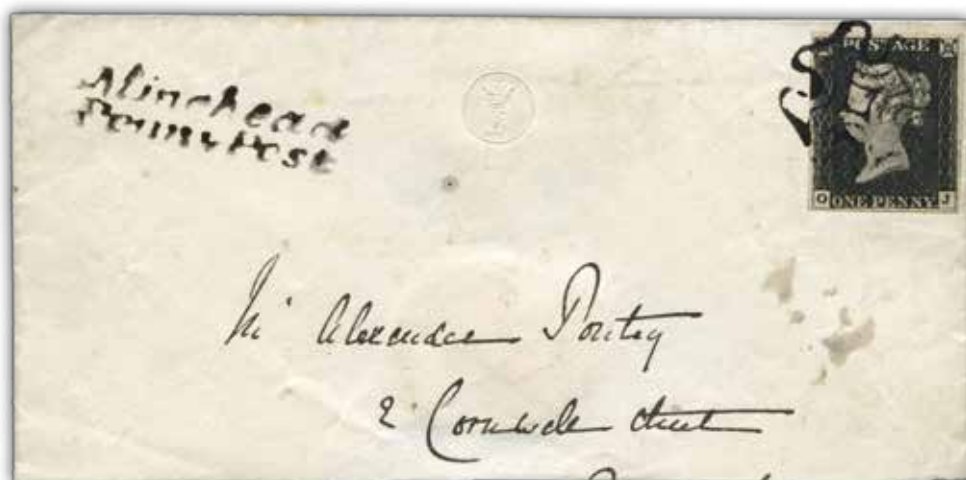 Minehead
Penny Post
POSTAGE
O ONE PENNY J
Mr Alexander Pontey
2 Cornwall Street